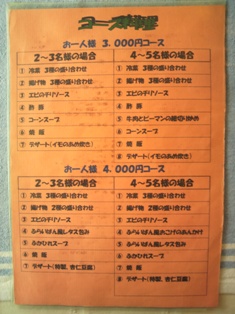 コース料理
お一人様 3.000円コース
2～3名様の場合
① 冷菜 3種の盛り合わせ
② 揚げ物 3種の盛り合わせ
③ エビのチリソース
④ 酢豚
⑤ コーンスープ
⑥ 焼飯
⑦ デザート(イモのあめ炊き)
4～5名様の場合
① 冷菜 3種の盛り合わせ
② 揚げ物 3種の盛り合わせ
③ エビのチリソース
④ 酢豚
⑤ 牛肉とピーマンの細切り炒め
⑥ コーンスープ
⑦ 焼飯
⑧ デザート(イモのあめ炊き)
お一人様 4.000円コース
2～3名様の場合
① 冷菜 3種の盛り合わせ
② 揚げ物 2種の盛り合わせ
③ エビのチリソース
④ ふらいぱん風レタス包み
⑤ ふかひれスープ
⑥ 焼飯
⑦ デザート(特製、杏仁豆腐)
4～5名様の場合
① 冷菜 3種の盛り合わせ
② 揚げ物 2種の盛り合わせ
③ エビのチリソース
④ ふらいぱん風おこげのあんかけ
⑤ ふらいぱん風レタス包み
⑥ ふかひれスープ
⑦ 焼飯
⑧ デザート(特製、杏仁豆腐)